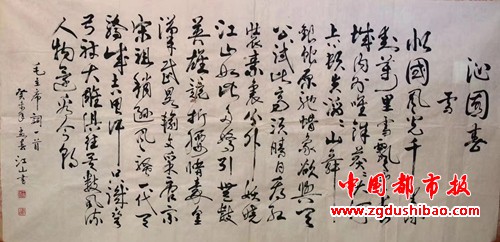 沁園春
雪
北國風光千里冰
封萬里雪飄望长
城内外惟餘莽莽大河
上下頓失滔滔山舞
銀蛇原驰蜡象欲與天
公試比高須晴日看红
装素裹分外妖娆
江山如此多娇引無數
英雄競折腰惜秦皇
漢武略输文采唐宗
宋祖稍逊風骚一代天
骄成吉思汗只識弯
弓射大雕俱往矣數風流
人物還看今朝
毛主席詞一首
年立春江山書
中国都市报
www.zgdushibao.com